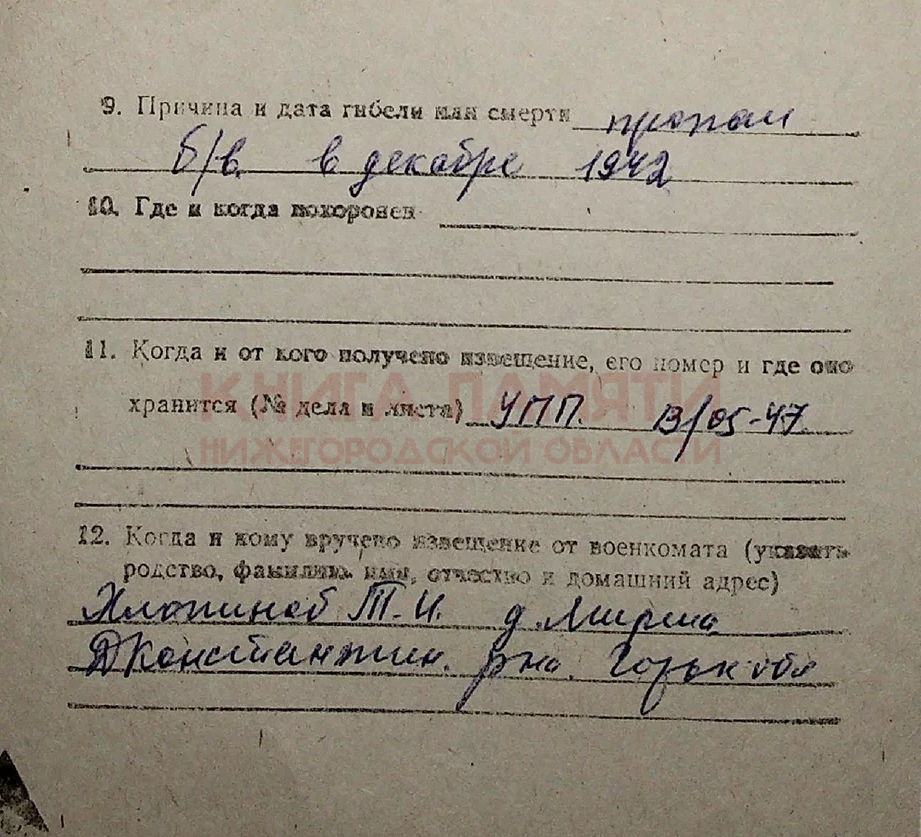 9. Причина и дата гибели или смерти пропал
б/в. в декабре 1942
10. Где и когда похоронен
11. Когда и от кого получено извещение, его номер и где оно
КНИГА ПАМЯТИ
хранится (№ дела и листа) УПП. 13/05-47.
НИЖЕГОРОДСКОЙ ОБЛАСТИ
12. Когда и кому вручено извещение от военкомата (указать
родство, фамилию, имя, отчество и домашний адрес)
Т. И. д.
Дконстантин. рна. Горьк обл